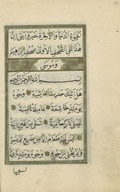 تؤثرون الحيوة الدنيا والآخرة خير وأبقى إن
هذا لفي الصحف الأولى صحف إبراهيم
وموسى
بسم الله الرحمن الرحيم
هل أتيك حديث الغاشية وجوه
يومئذ خاشعة عاملة ناصبة
تصلى نارا حامية تسقى من عين
آنية ليس لهم طعام إلا من ضريع لا يسمن
ولا يغني من جوع وجوه يومئذ